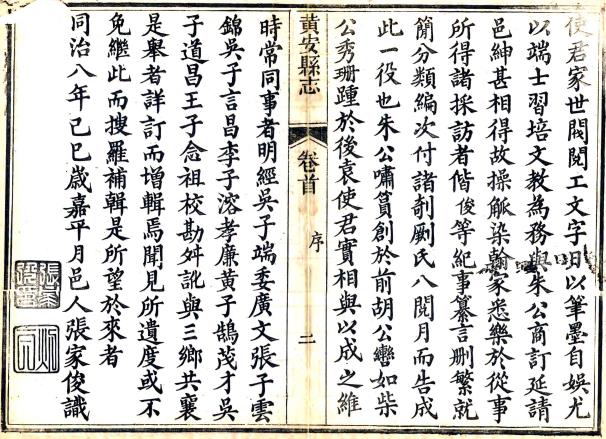 使君家世閥閱工文字日以筆墨自娛尤
以端士習培文教為務與朱公商訂延請
邑紳甚相得故操觚染翰家悉樂於從事
所得諸採訪者偕俊等紀事纂言刪繁就
簡分類編次付諸剞劂氏八閱月而告成
此一役也朱公嘯篔創於前胡公巒如柴
公秀珊踵於後袁使君實相與以成之維
黃安縣志
卷首
序
二
時常同事者明經吳子端委廣文張子雲
錦吳子言昌李子溶孝廉黃子鵠茂才吳
子道昌王子念祖校勘舛訛與三鄉共襄
是舉者詳訂而增輯焉聞見所遺度或不
免繼此而搜羅補輯是所望於來者
同治八年己巳歲嘉平月邑人張家俊識